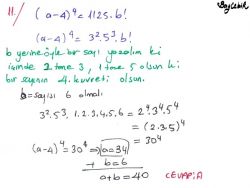 Baykılık
11/ (a-4)⁴ = 1125.b!
(a-4)⁴ = 3².5³.b!
b yerine öyle bir sayı yazalım ki
içinde 2 tane 3, 1 tane 5 olsun ki
bir sayının 4. kuvveti olsun.
b = sayısı 6 olmalı
3².5³. 1.2.3.4.5.6 = 2⁴.3⁴.5⁴
= (2.3.5)⁴
= 30⁴
(a-4)⁴ = 30⁴ ⇒ a = 34
+ b = 6
a+b = 40
CEVAP: A